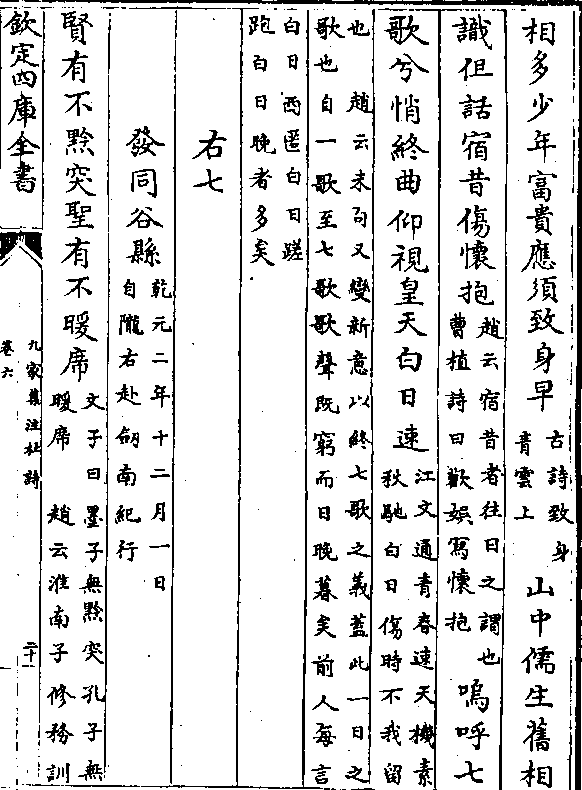 相多少年富貴應須致身早古詩致身青雲上山中儒生舊相
識但話宿昔傷懷抱趙云宿昔者往日之謂也曹植詩曰歡娛寫懷抱嗚呼七
歌兮悄終曲仰視皇天白日速江文通青春速天機素秋馳白日傷時不我留
也趙云末句又變新意以終七歌之義蓋此一日之
歌也自一歌至七歌歌聲既窮而日晚暮矣前人每言
白日西匿白日蹉
跑白日晚者多矣
右七
發同谷縣乾元二年十二月一日自隴右赴劒南紀行
賢有不黔突聖有不暖席文子曰墨子無黔突孔子無暖席趙云淮南子修務訓
欽定四庫全書
九家集注杜詩
卷六
二十